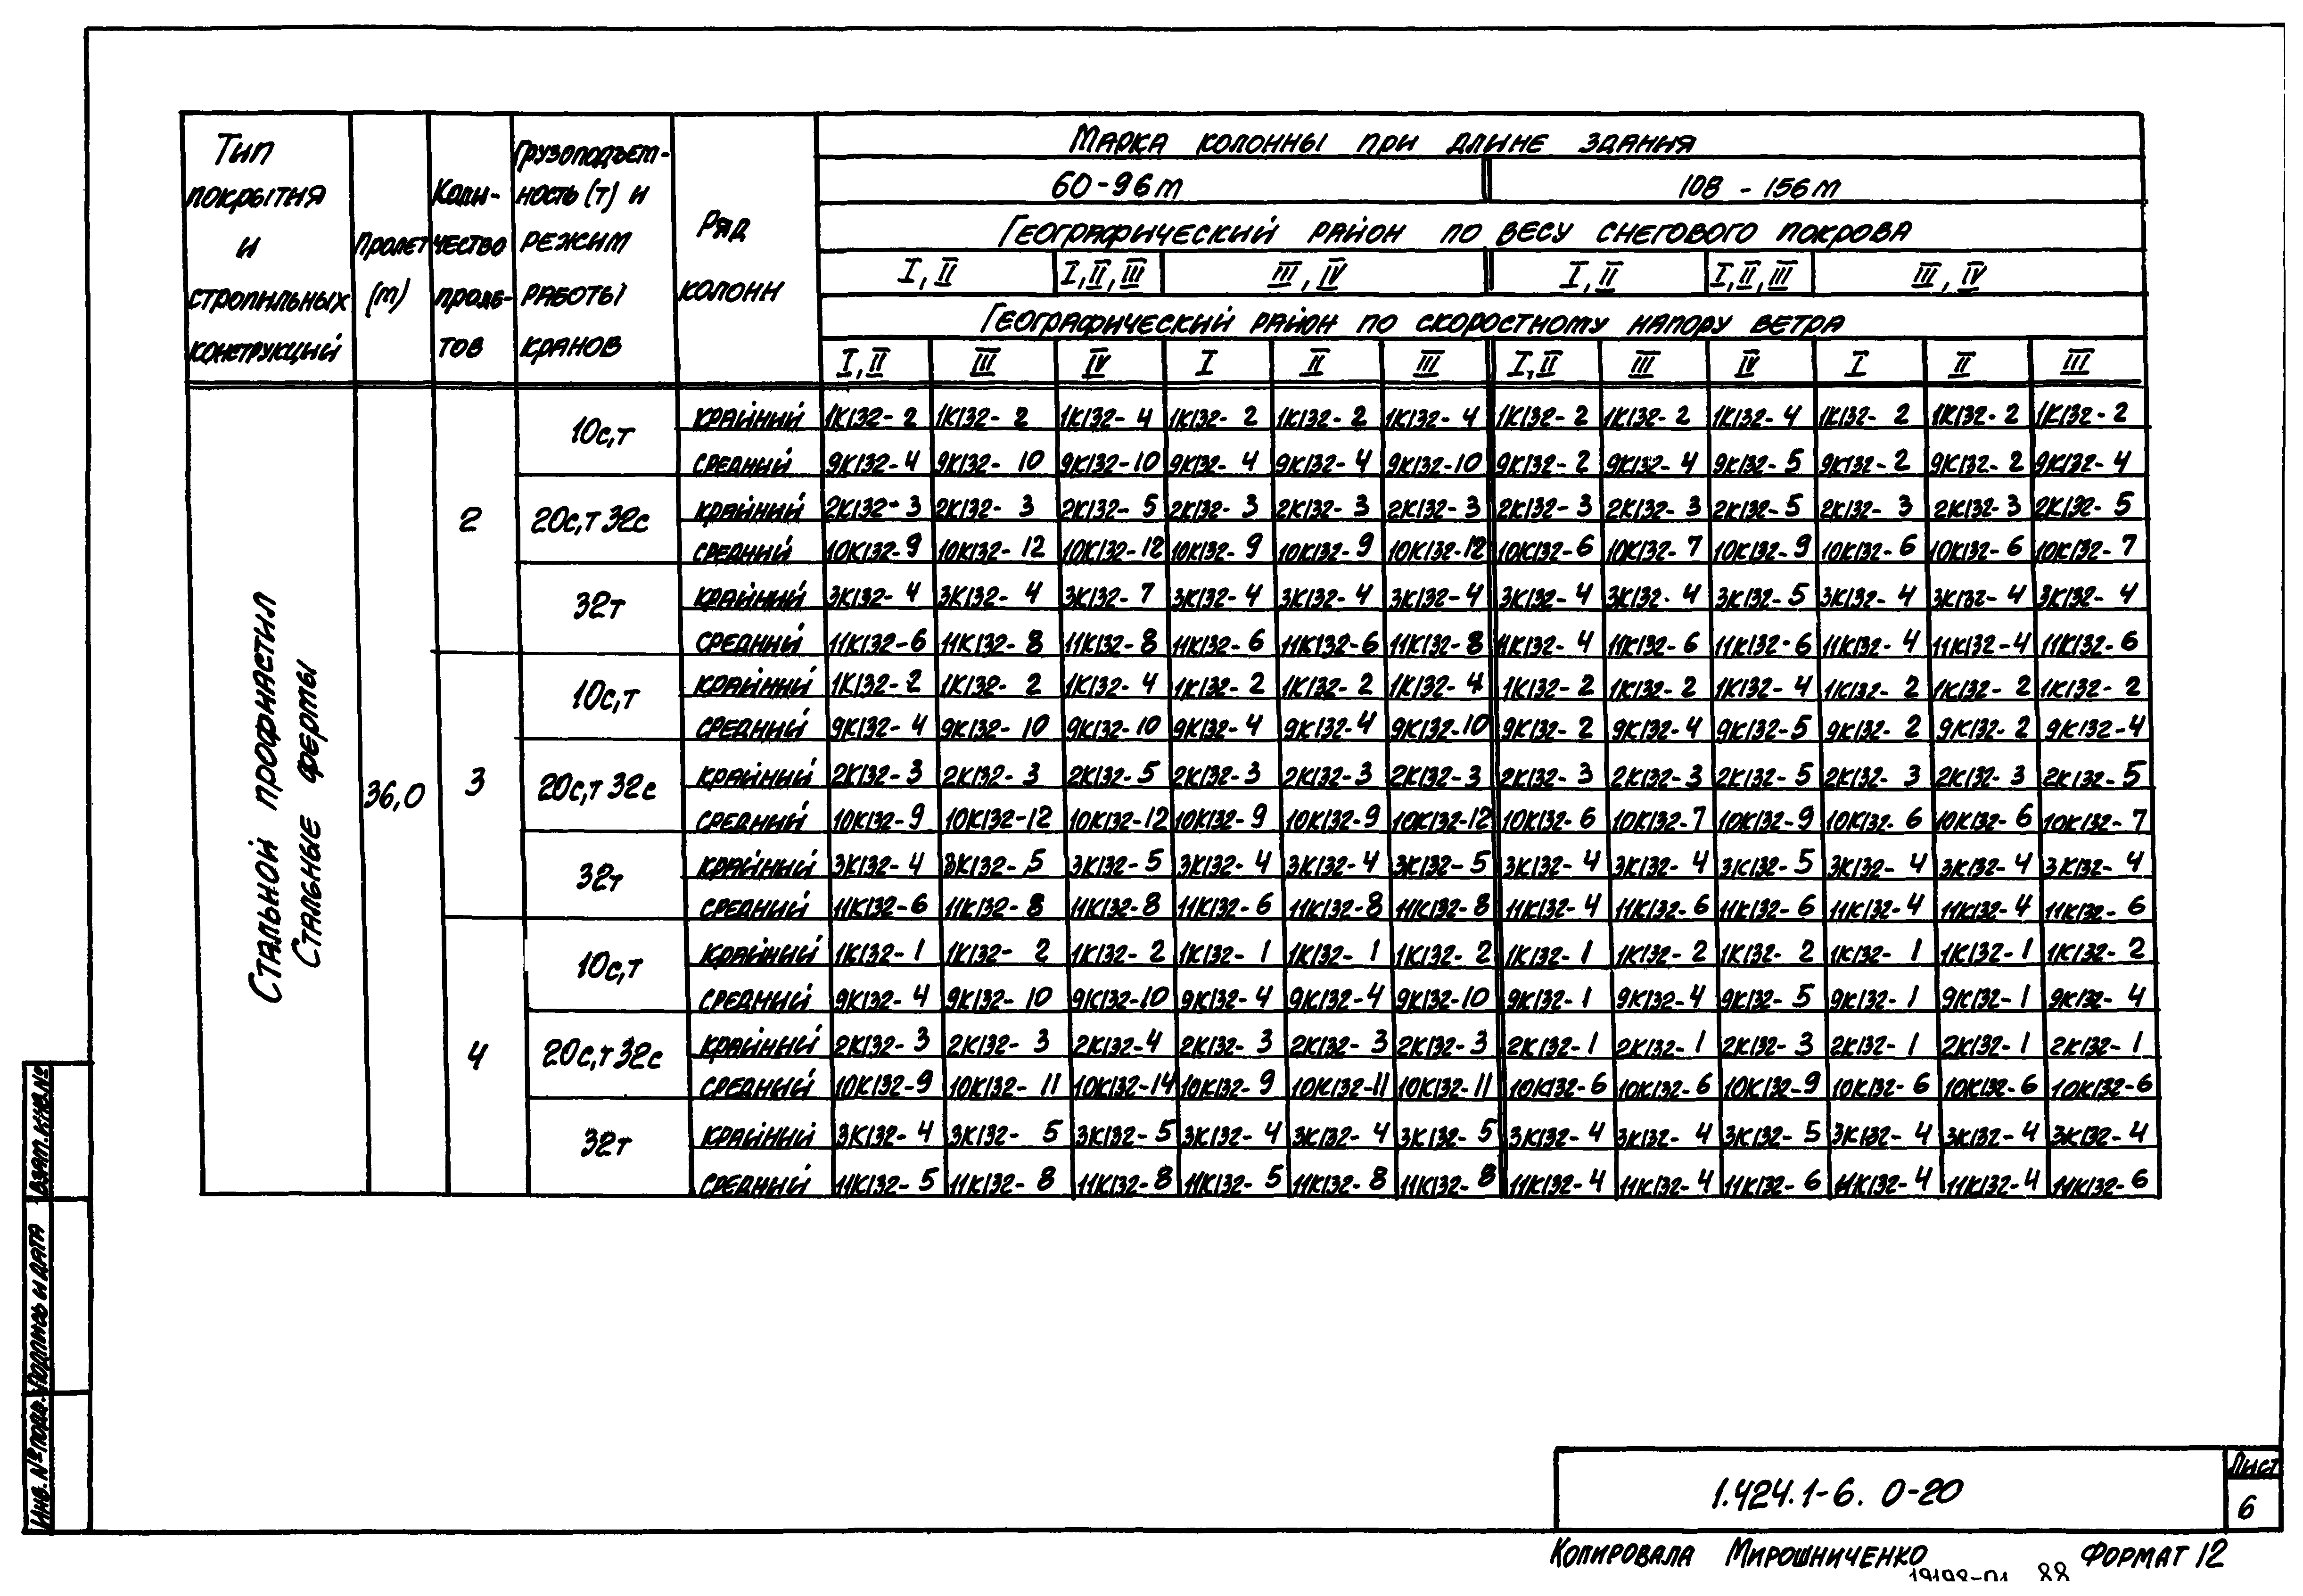 Тип покрытия и стропильных конструкций
Пролет (м)
Коли-чество проле-тов
Грузоподъем-ность (т) и режим работы кранов
Ряд колонн
Марка колонны при длине здания
60-96м 108-156м
Географический район по весу снегового покрова
I, II I, II, III III, IV I, II I, II, III III, IV
Географический район по скоростному напору ветра
I, II III IV I II III I, II III IV I II III
Стальной профнастил
Стальные фермы
36,0
2
10с,т
крайний 1К132-2 1К132-2 1К132-4 1К132-2 1К132-2 1К132-4 1К132-2 1К132-2 1К132-4 1К132-2 1К132-2 1К132-2
средний 9К132-4 9К132-10 9К132-10 9К132-4 9К132-4 9К132-10 9К132-2 9К132-4 9К132-5 9К132-2 9К132-2 9К132-4
20с,т 32с
крайний 2К132-3 2К132-3 2К132-5 2К132-3 2К132-3 2К132-3 2К132-3 2К132-3 2К132-5 2К132-3 2К132-3 2К132-5
средний 10К132-9 10К132-12 10К132-12 10К132-9 10К132-9 10К132-12 10К132-6 10К132-7 10К132-9 10К132-6 10К132-6 10К132-7
32т
крайний 3К132-4 3К132-4 3К132-7 3К132-4 3К132-4 3К132-4 3К132-4 3К132-4 3К132-5 3К132-4 3К132-4 3К132-4
средний 11К132-6 11К132-8 11К132-8 11К132-6 11К132-6 11К132-8 11К132-4 11К132-6 11К132-6 11К132-4 11К132-4 11К132-6
3
10с,т
крайний 1К132-2 1К132-2 1К132-4 1К132-2 1К132-2 1К132-4 1К132-2 1К132-2 1К132-4 1К132-2 1К132-2 1К132-2
средний 9К132-4 9К132-10 9К132-10 9К132-4 9К132-4 9К132-10 9К132-2 9К132-4 9К132-5 9К132-2 9К132-2 9К132-4
20с,т 32с
крайний 2К132-3 2К132-3 2К132-5 2К132-3 2К132-3 2К132-3 2К132-3 2К132-3 2К132-5 2К132-3 2К132-3 2К132-5
средний 10К132-9 10К132-12 10К132-12 10К132-9 10К132-9 10К132-12 10К132-6 10К132-7 10К132-9 10К132-6 10К132-6 10К132-7
32т
крайний 3К132-4 3К132-5 3К132-5 3К132-4 3К132-4 3К132-5 3К132-4 3К132-4 3К132-5 3К132-4 3К132-4 3К132-4
средний 11К132-6 11К132-8 11К132-8 11К132-6 11К132-8 11К132-8 11К132-4 11К132-6 11К132-6 11К132-4 11К132-4 11К132-6
4
10с,т
крайний 1К132-1 1К132-2 1К132-2 1К132-1 1К132-1 1К132-2 1К132-1 1К132-2 1К132-2 1К132-1 1К132-1 1К132-2
средний 9К132-4 9К132-10 9К132-10 9К132-4 9К132-4 9К132-10 9К132-1 9К132-4 9К132-5 9К132-1 9К132-1 9К132-4
20с,т 32с
крайний 2К132-3 2К132-3 2К132-4 2К132-3 2К132-3 2К132-3 2К132-1 2К132-1 2К132-3 2К132-1 2К132-1 2К132-1
средний 10К132-9 10К132-11 10К132-14 10К132-9 10К132-11 10К132-11 10К132-6 10К132-6 10К132-9 10К132-6 10К132-6 10К132-6
32т
крайний 3К132-4 3К132-5 3К132-5 3К132-4 3К132-4 3К132-5 3К132-4 3К132-4 3К132-5 3К132-4 3К132-4 3К132-4
средний 11К132-5 11К132-8 11К132-8 11К132-5 11К132-8 11К132-8 11К132-4 11К132-4 11К132-6 11К132-4 11К132-4 11К132-6
Взам.инв.№
Подпись и дата
Инв. № подл.
1.424.1-6. 0-20
Лист
6
Копировала Мирошниченко Формат 12
19198-01 88